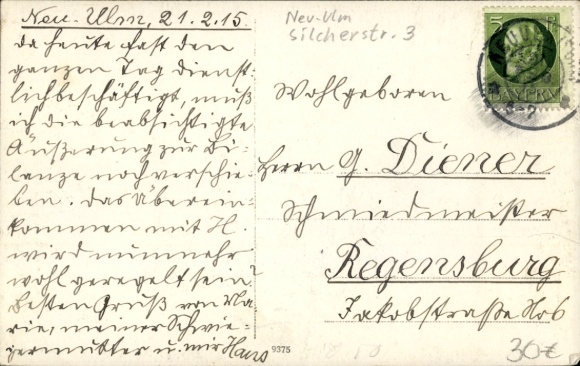 Neu-Ulm, 21.2.15.
da heute fast den
ganzen Tag dienst-
lich beschäftigt, muß
ich die beabsichtigte
Äußerung zur Bi-
lanze noch verschie-
ben. Das Überein-
kommen mit H.
wird nunmehr
wohl geregelt sein?
Besten Gruß von Ma-
rie, meiner Schwie-
germutter u. mir Hans
9375
Neu-Ulm
Silcherstr. 3
5
BAYERN
Wohlgeboren
Herrn G. Diener
Schmiedmeister
Regensburg
Jakobstraße No 6
30€